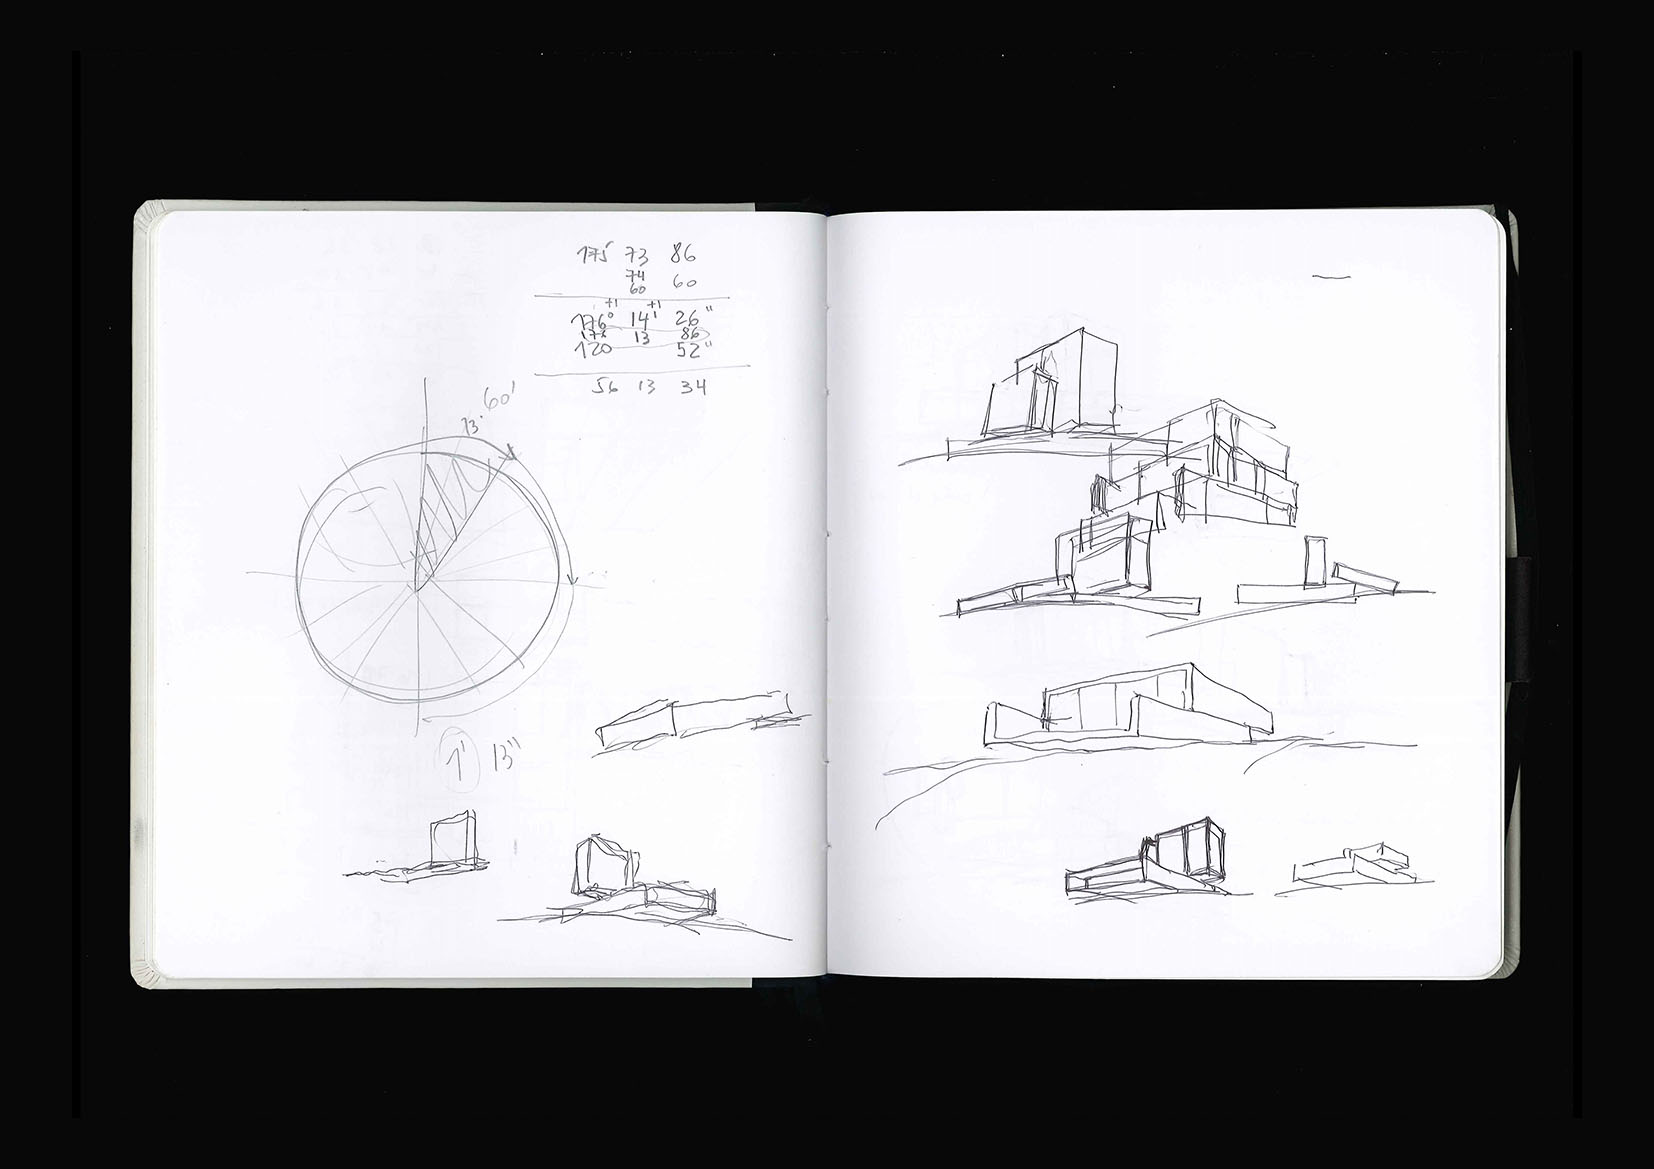 175 73 86
74
60 60
+1 +1
176° 14' 26"
175 13 86
120 52"
56 13 34
60'
13'
1' 13"